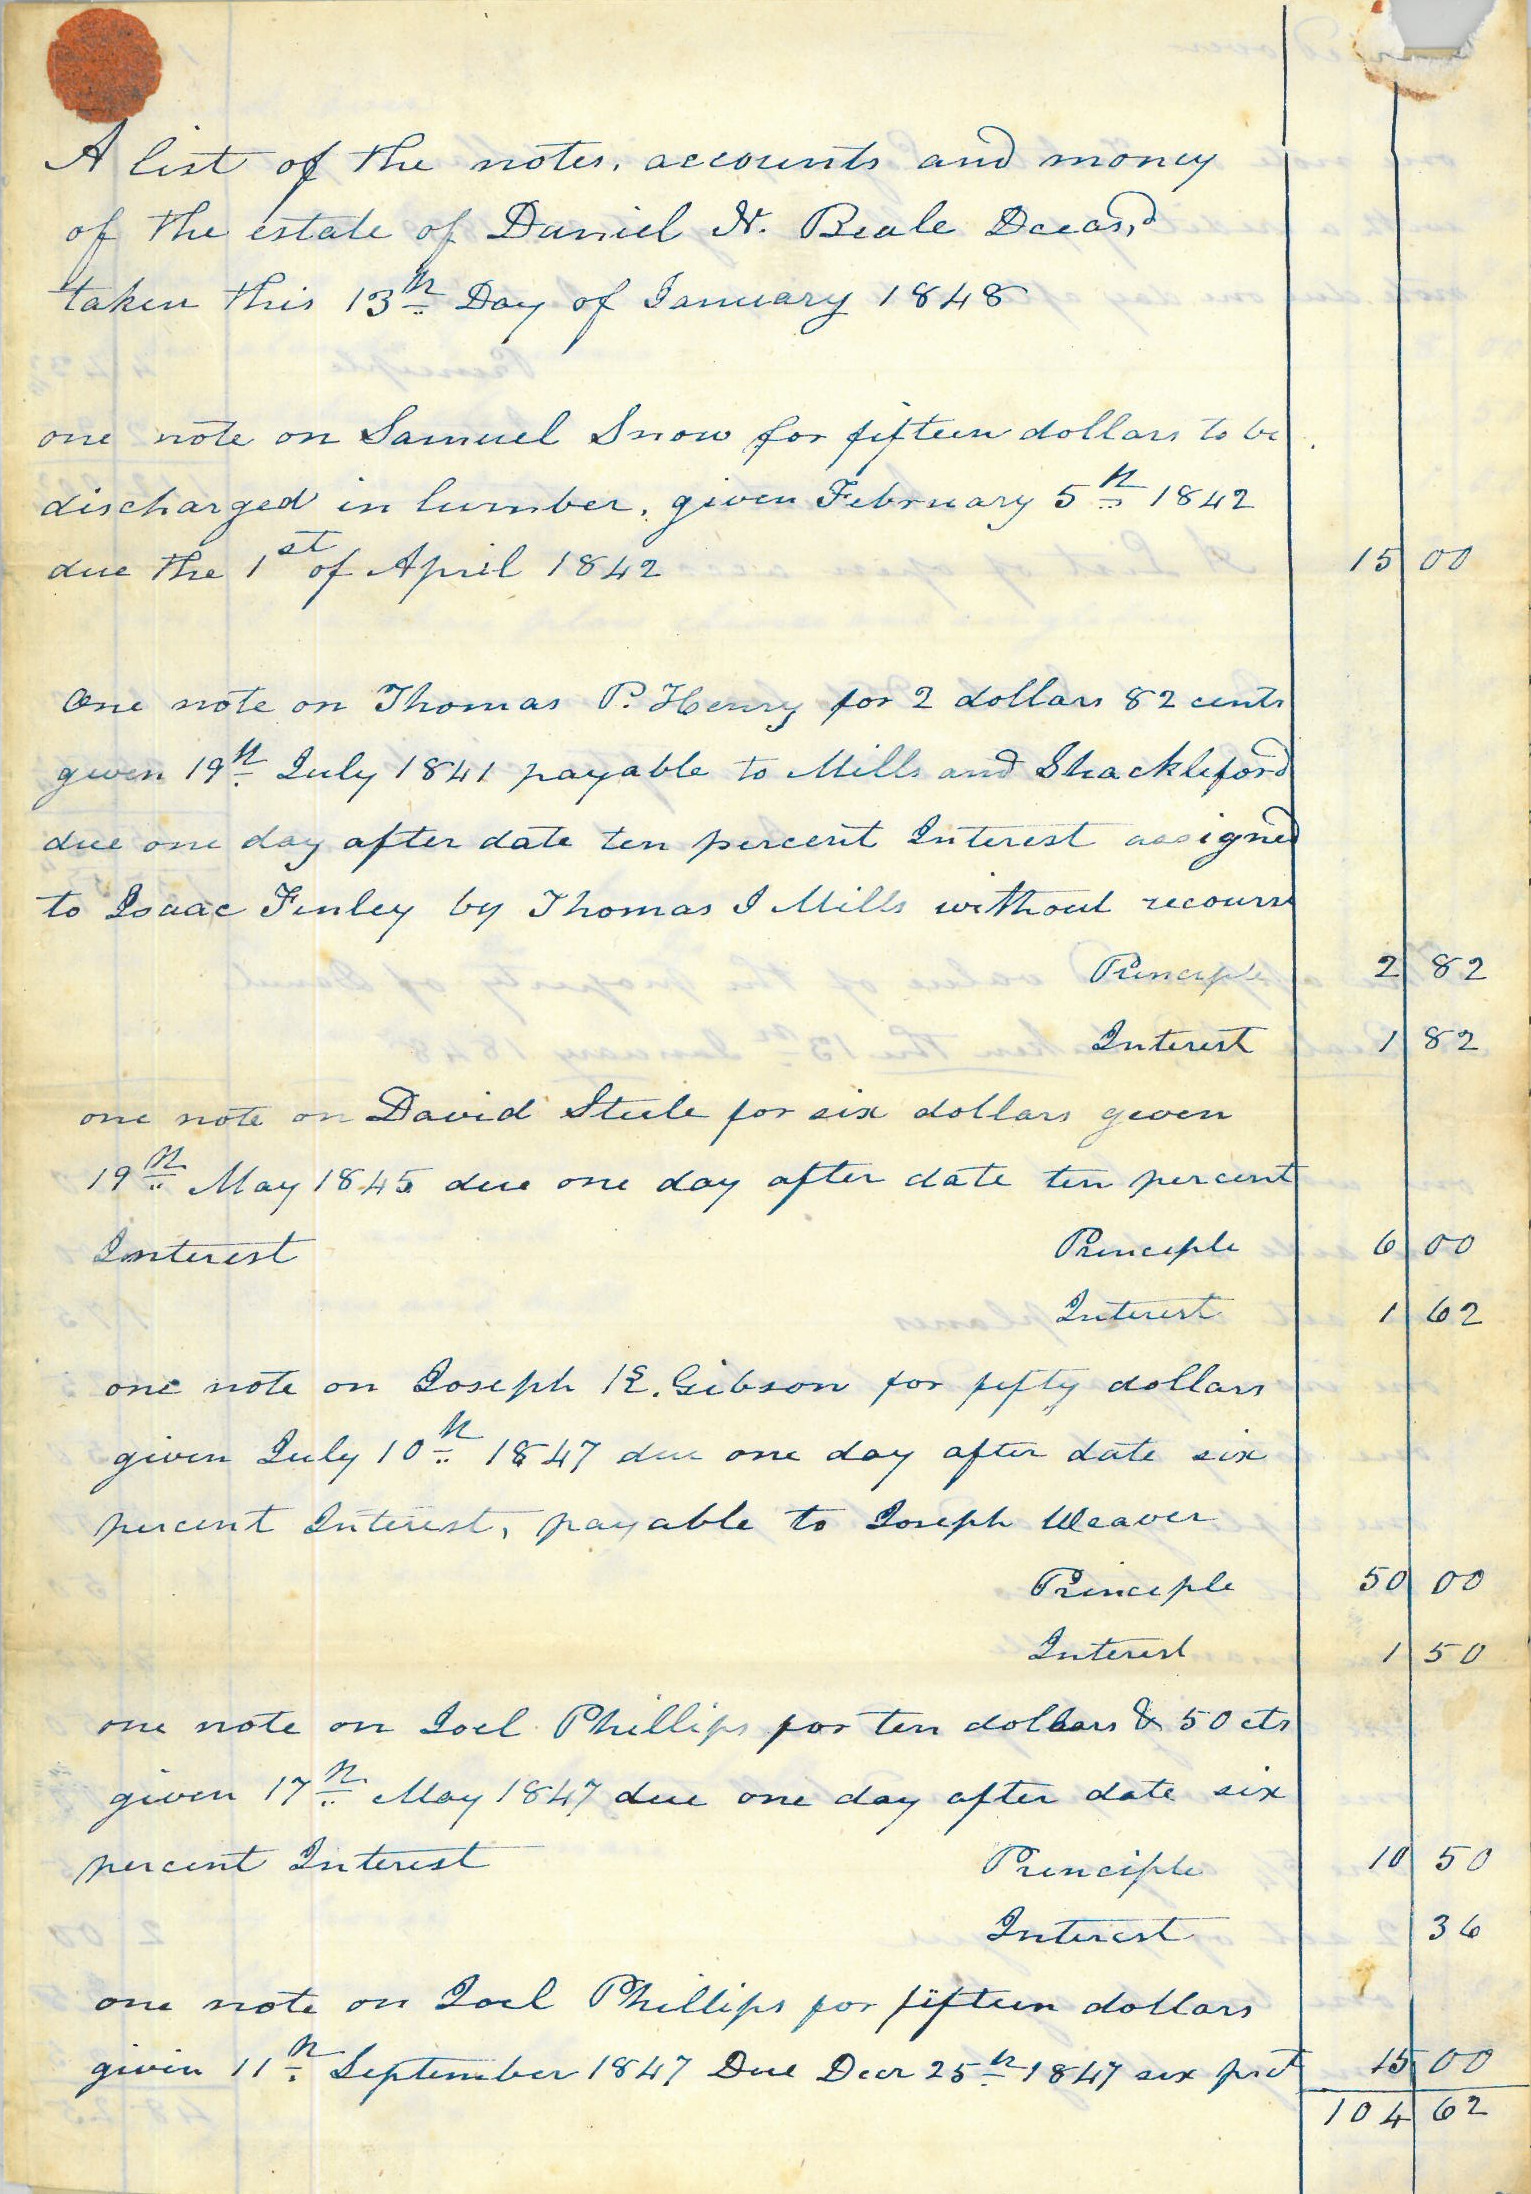 A list of the notes, accounts and money
of the estate of Daniel N. Beale Deceas,d
taken this 13th Day of January 1848
one note on Samuel Snow for fifteen dollars to be
discharged in lumber, given February 5th 1842
due the 1st of April 1842 15 00
One note on Thomas P. Henry for 2 dollars 82 cents
given 19th July 1841 payable to Mills and Shackleford
due one day after date ten percent Interest assigned
to Isaac Finley by Thomas J Mills without recourse
Principle 2 82
Interest 1 82
one note on David Steele for six dollars given
19th May 1845 due one day after date ten percent
Interest Principle 6 00
Interest 1 62
one note on Joseph E. Gibson for fifty dollars
given July 10th 1847 due one day after date six
percent Interest, payable to Joseph Weaver
Principle 50 00
Interest 1 50
one note on Joel Phillips for ten dollars & 50 cts
given 17th May 1847 due one day after date six
percent Interest Principle 10 50
Interest 36
one note on Joel Phillips for fifteen dollars
given 11th September 1847 Due Decr 25th 1847 six prct 15 00
104 62